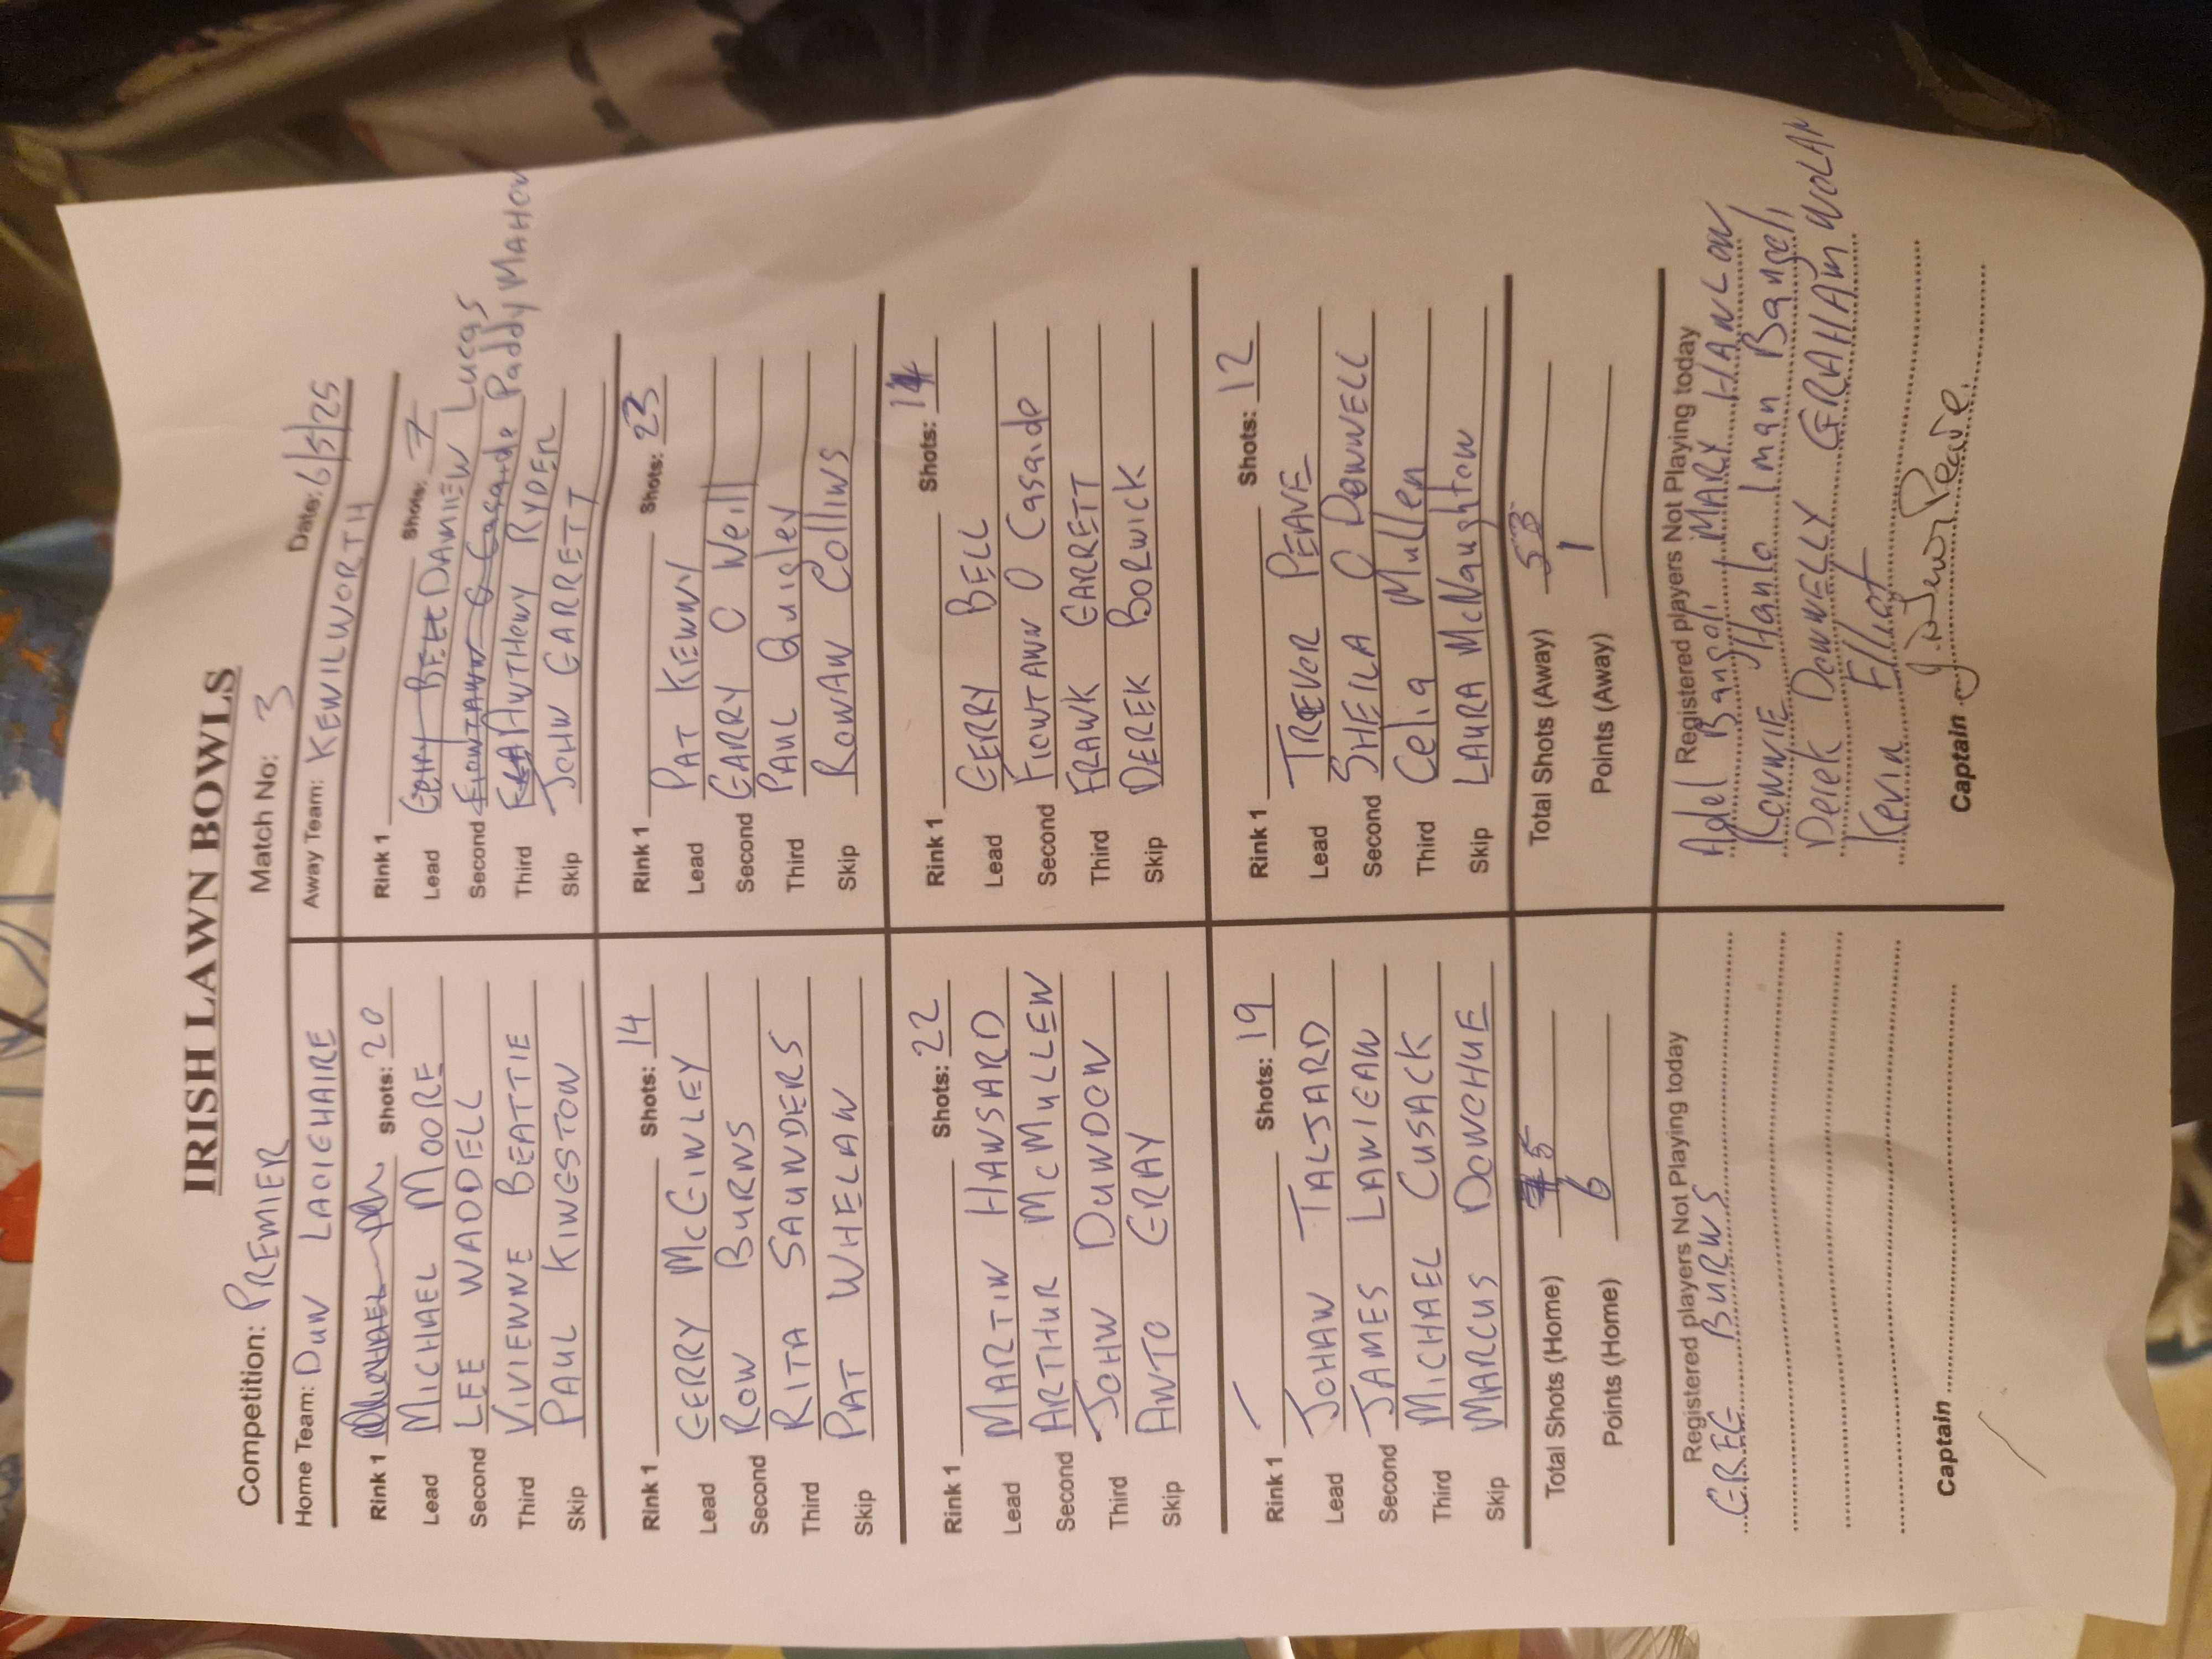 IRISH LAWN BOWLS
Competition: PREMIER Match No: 3 Date: 6/5/25
Home Team: DUN LAOIGHAIRE Away Team: KENILWORTH
Rink 1 Shots: 20
Lead MICHAEL MOORE
Second LEE WADDELL
Third VIVIENNE BEATTIE
Skip PAUL KINGSTON
Rink 1 Shots: 7
Lead GERRY BELL DAMIEN Lucas
Second FIONTANN O Casaide Paddy MAHON
Third ANTHONY RYDER
Skip JOHN GARRETT
Rink 1 Shots: 14
Lead GERRY McGINLEY
Second RON BURNS
Third RITA SAUNDERS
Skip PAT WHELAN
Rink 1 Shots: 23
Lead PAT KENNY
Second GARRY O Neill
Third PAUL Quigley
Skip RONAN COLLINS
Rink 1 Shots: 22
Lead MARTIN HANSARD
Second ARTHUR McMULLEN
Third JOHN DUNDON
Skip ANTO GRAY
Rink 1 Shots: 14
Lead GERRY BELL
Second FIONTANN O Casaide
Third FRANK GARRETT
Skip DEREK BORWICK
Rink 1 Shots: 19
Lead JOHAN TALJARD
Second JAMES LANIGAN
Third MICHAEL CUSACK
Skip MARCUS DONOHUE
Rink 1 Shots: 12
Lead TREVOR PEAVE
Second SHEILA O DONNELL
Third Celia Mullen
Skip LAURA McNaughton
Total Shots (Home) 75
Points (Home) 6
Total Shots (Away) 53
Points (Away) 1
Registered players Not Playing today
GREG BURNS
Captain
Registered players Not Playing today
Adel Bangoli MARY HANLON
CONNIE Hanlo Iman Bangoli
Derek DONNELLY GRAHAM NOLAN
Kevin Elliot
Captain